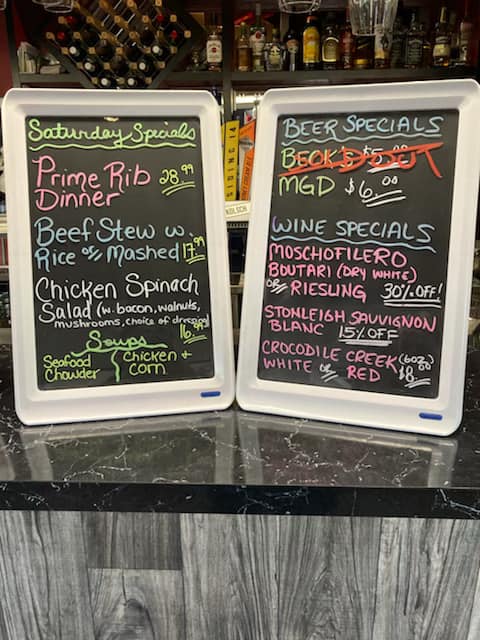 Saturday Specials
Prime Rib 28.99
Dinner
Beef Stew w.
Rice or Mashed 17.99
Chicken Spinach
Salad (w. bacon, walnuts,
mushrooms, choice of dressing)
16.99
Soups
Seafood Chowder
Chicken + Corn
SIDING 14
KOLSCH
BEER SPECIALS
BECK'S
MGD $6.00
WINE SPECIALS
MOSCHOFILERO
BOUTARI (DRY WHITE)
or RIESLING 30% OFF!
STONLEIGH SAUVIGNON
BLANC 15% OFF
CROCODILE CREEK (6oz)
WHITE or RED $8.00